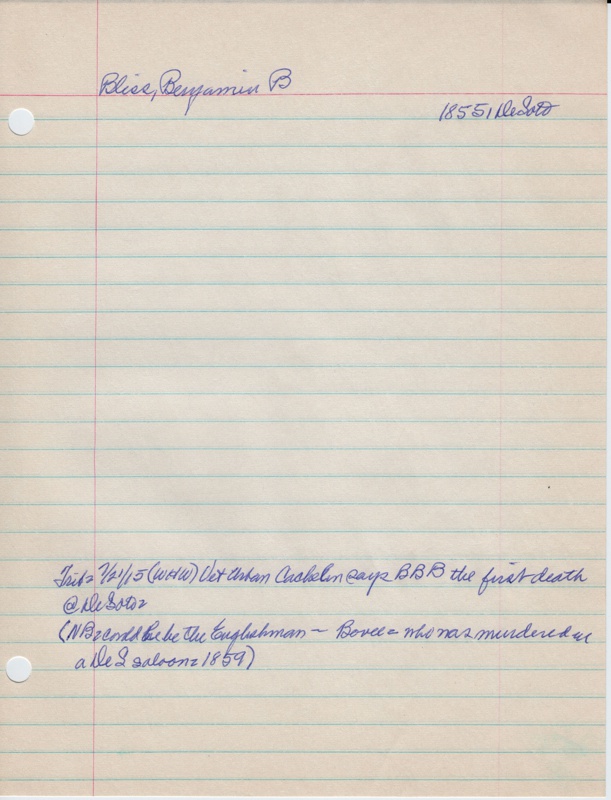 Bliss, Benjamin B
1855, De Soto
Trib= 7/21/15 (WHW) Vet Urban says BBB the first death
@ De Soto=
(NB= could he be the Englishman — Bovee = who was murdered in
a De S saloon= 1859)